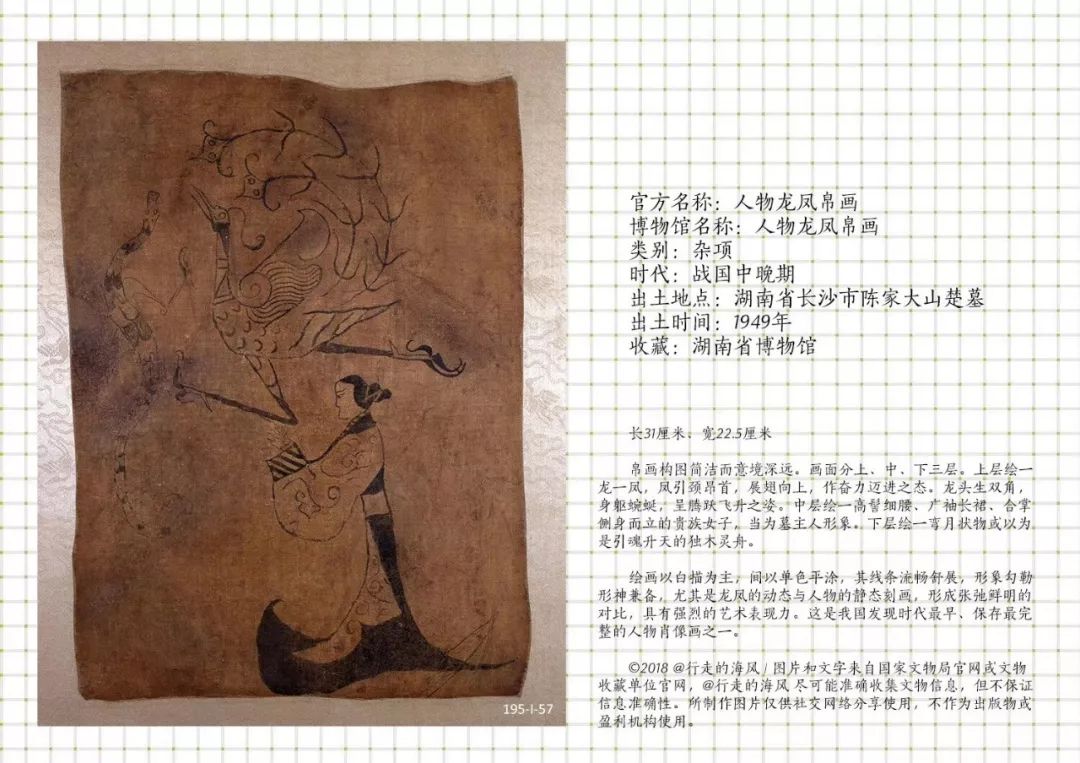 官方名称：人物龙凤帛画
博物馆名称：人物龙凤帛画
类别：杂项
时代：战国中晚期
出土地点：湖南省长沙市陈家大山楚墓
出土时间：1949年
收藏：湖南省博物馆
长31厘米、宽22.5厘米
帛画构图简洁而意境深远。画面分上、中、下三层。上层绘一
龙一凤，凤引颈昂首，展翅向上，作奋力迈进之态。龙头生双角，
身躯蜿蜒，呈腾跃飞升之姿。中层绘一高髻细腰、广袖长裙、合掌
侧身而立的贵族女子，当为墓主人形象。下层绘一弯月状物或以为
是引魂升天的独木灵舟。
绘画以白描为主，间以单色平涂，其线条流畅舒展，形象勾勒
形神兼备，尤其是龙凤的动态与人物的静态刻画，形成张弛鲜明的
对比，具有强烈的艺术表现力。这是我国发现时代最早、保存最完
整的人物肖像画之一。
©2018 @行走的海风 / 图片和文字来自国家文物局官网或文物
收藏单位官网，@行走的海风 尽可能准确收集文物信息，但不保证
信息准确性。所制作图片仅供社交网络分享使用，不作为出版物或
盈利机构使用。
195-I-57